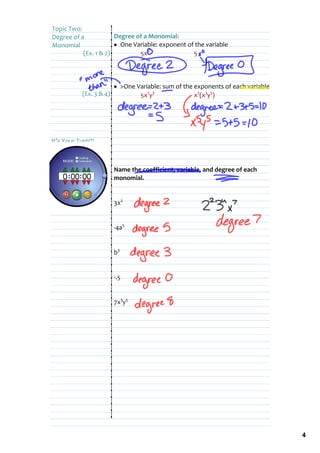 Topic Two:
Degree of a
Monomial
Degree of a Monomial:
• One Variable: exponent of the variable
(Ex. 1 & 2)
5x² 5 x⁰
Degree 2 Degree 0
"more than"
• >One Variable: sum of the exponents of each variable
(Ex. 3 & 4)
5x²y³ x²(x³y⁵)
degree=2+3 degree=2+3+5=10
=5
x⁵y⁵ =5+5=10
It's Your Turn!!!
0:00:00
Name the coefficient, variable, and degree of each
monomial.
3x² degree 2
2²3⁴x⁷
degree 7
-4a⁵ degree 5
b³ degree 3
-5 degree 0
7x³y⁵ degree 8
4